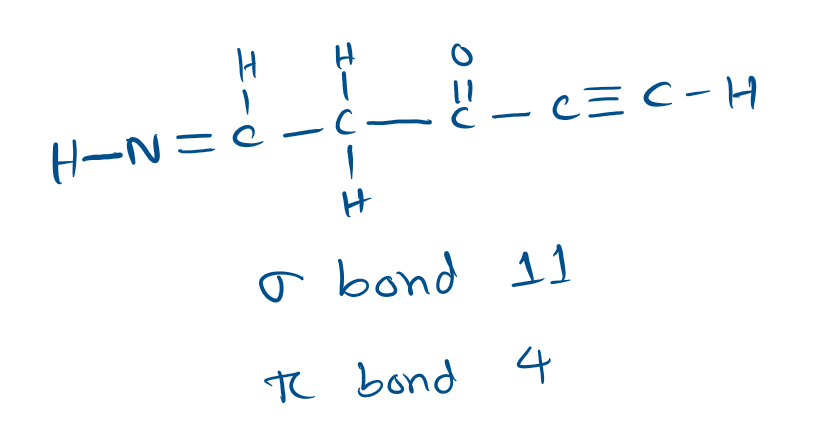 H H O
H-N=C-C-C-C≡C-H
H
σ bond 11
π bond 4